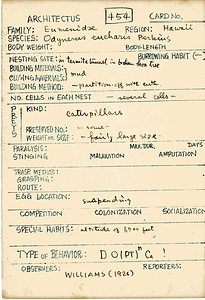 ARCHITECTUS 454 CARD NO.
FAMILY: Eumenidae REGION: Hawaii
SPECIES: Odynerus eucharis Perkins
BODY WEIGHT: BODY-LENGTH
NESTING SITE: in termite tunnel in tree BURROWING HABIT (-)
BUILDING MATERIALS:
CLOSING MATERIALS: mud
BUILDING METHOD: -partition-
NO. CELLS IN EACH NEST -several cells-
PREY KIND: caterpillars
PRESERVED NO.: -some-
WEIGHT OR SIZE: -fairly large size-
PARALYSIS: MAX. DUR. DAYS
STINGING MALAXATION AMPUTATION
TRANSP. METHOD:
GRASPING:
ROUTE:
EGG LOCATION: suspending
COMPETITION COLONIZATION SOCIALIZATION
SPECIAL HABITS: altitude of feet
TYPE OF BEHAVIOR: D O(PT)ⁿ C !
OBSERVERS: REPORTERS:
WILLIAMS (1926)